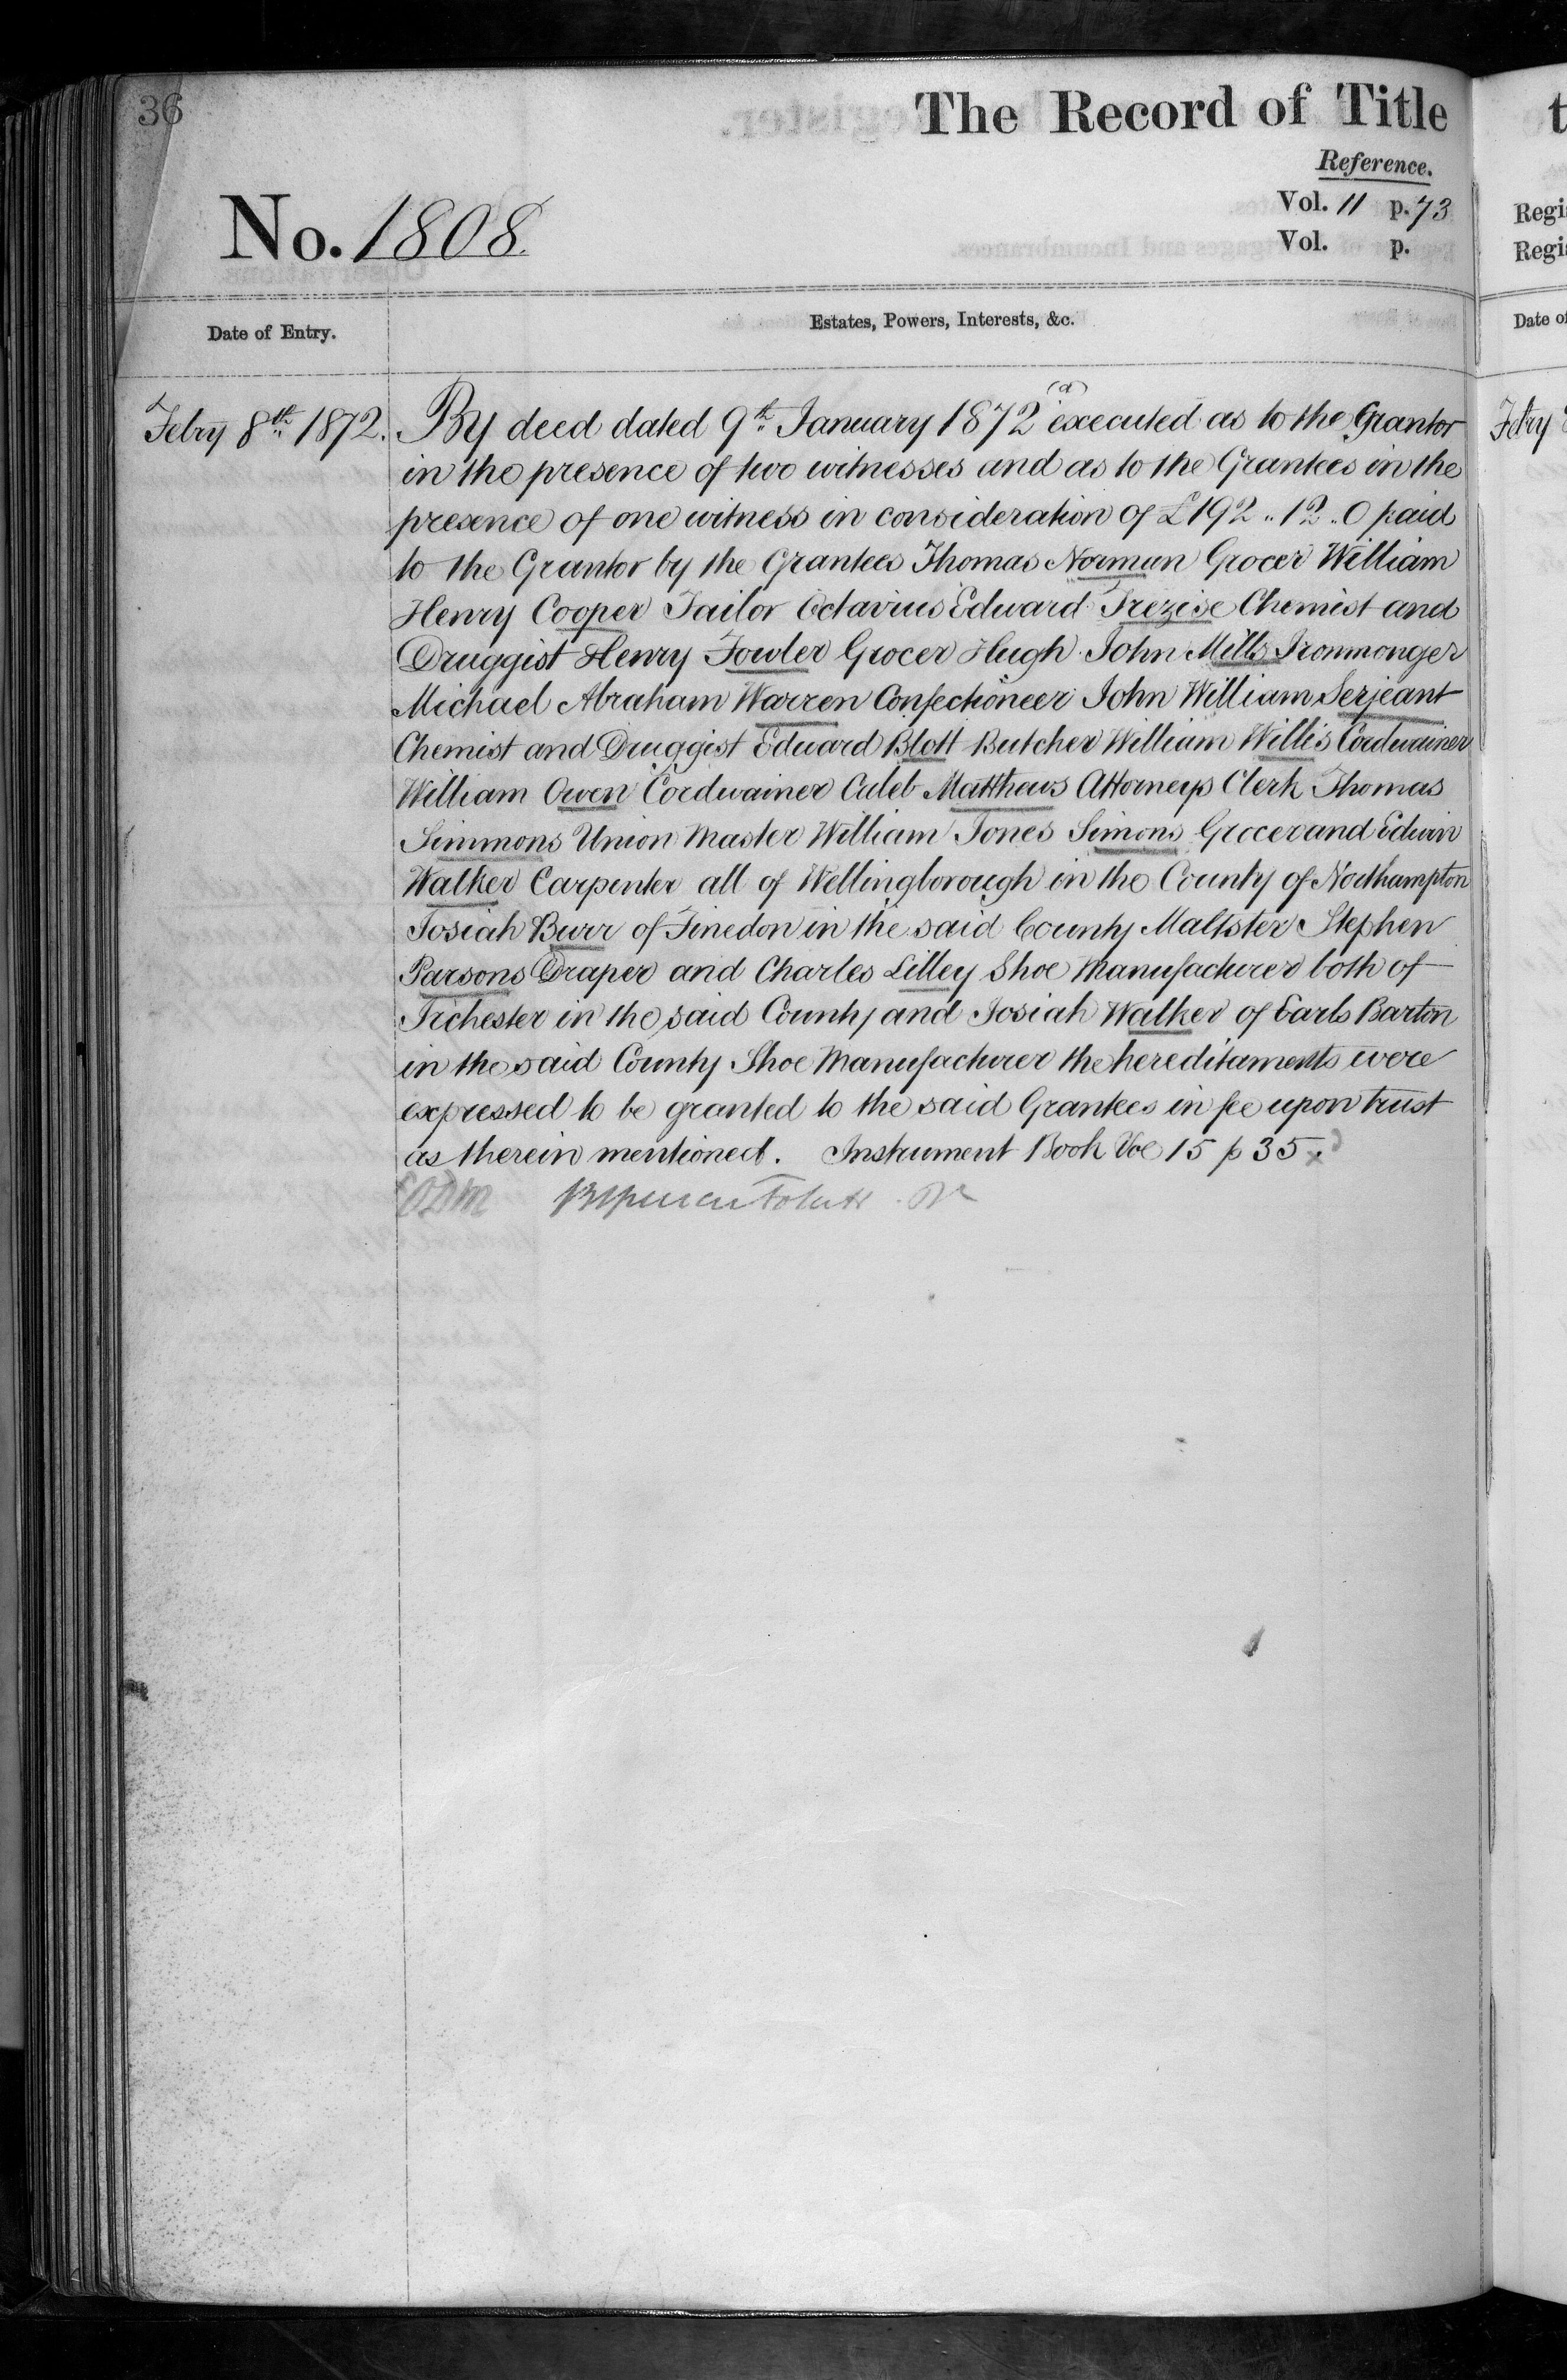 36
The Record of Title
Reference.
Vol. 11 p. 73
Vol. p.
No. 1808.
Date of Entry.
Estates, Powers, Interests, &c.
Febry 8th 1872.
(a)
By deed dated 9th January 1872 executed as to the Grantor
in the presence of two witnesses and as to the Grantees in the
presence of one witness in consideration of £192 .. 12 .. 0 paid
to the Grantor by the Grantees Thomas Norman Grocer William
Henry Cooper Tailor Octavius Edward Trezise Chemist and
Druggist Henry Fowler Grocer Hugh John Mills Ironmonger
Michael Abraham Warren Confectioneer John William Serjeant
Chemist and Druggist Edward Blott Butcher William Willis Cordwainer
William Owen Cordwainer Caleb Matthews Attorneys Clerk Thomas
Simmons Union Master William Jones Simons Grocer and Edwin
Walker Carpenter all of Wellingborough in the County of Northampton
Josiah Burr of Finedon in the said County Maltster Stephen
Parsons Draper and Charles Lilley Shoe Manufacturer both of
Irchester in the said County and Josiah Walker of Earls Barton
in the said County Shoe Manufacturer the hereditaments were
expressed to be granted to the said Grantees in fee upon trust
as therein mentioned. Instrument Book Vol 15 p 35.
t
Regis
Regis
Date of
Febry